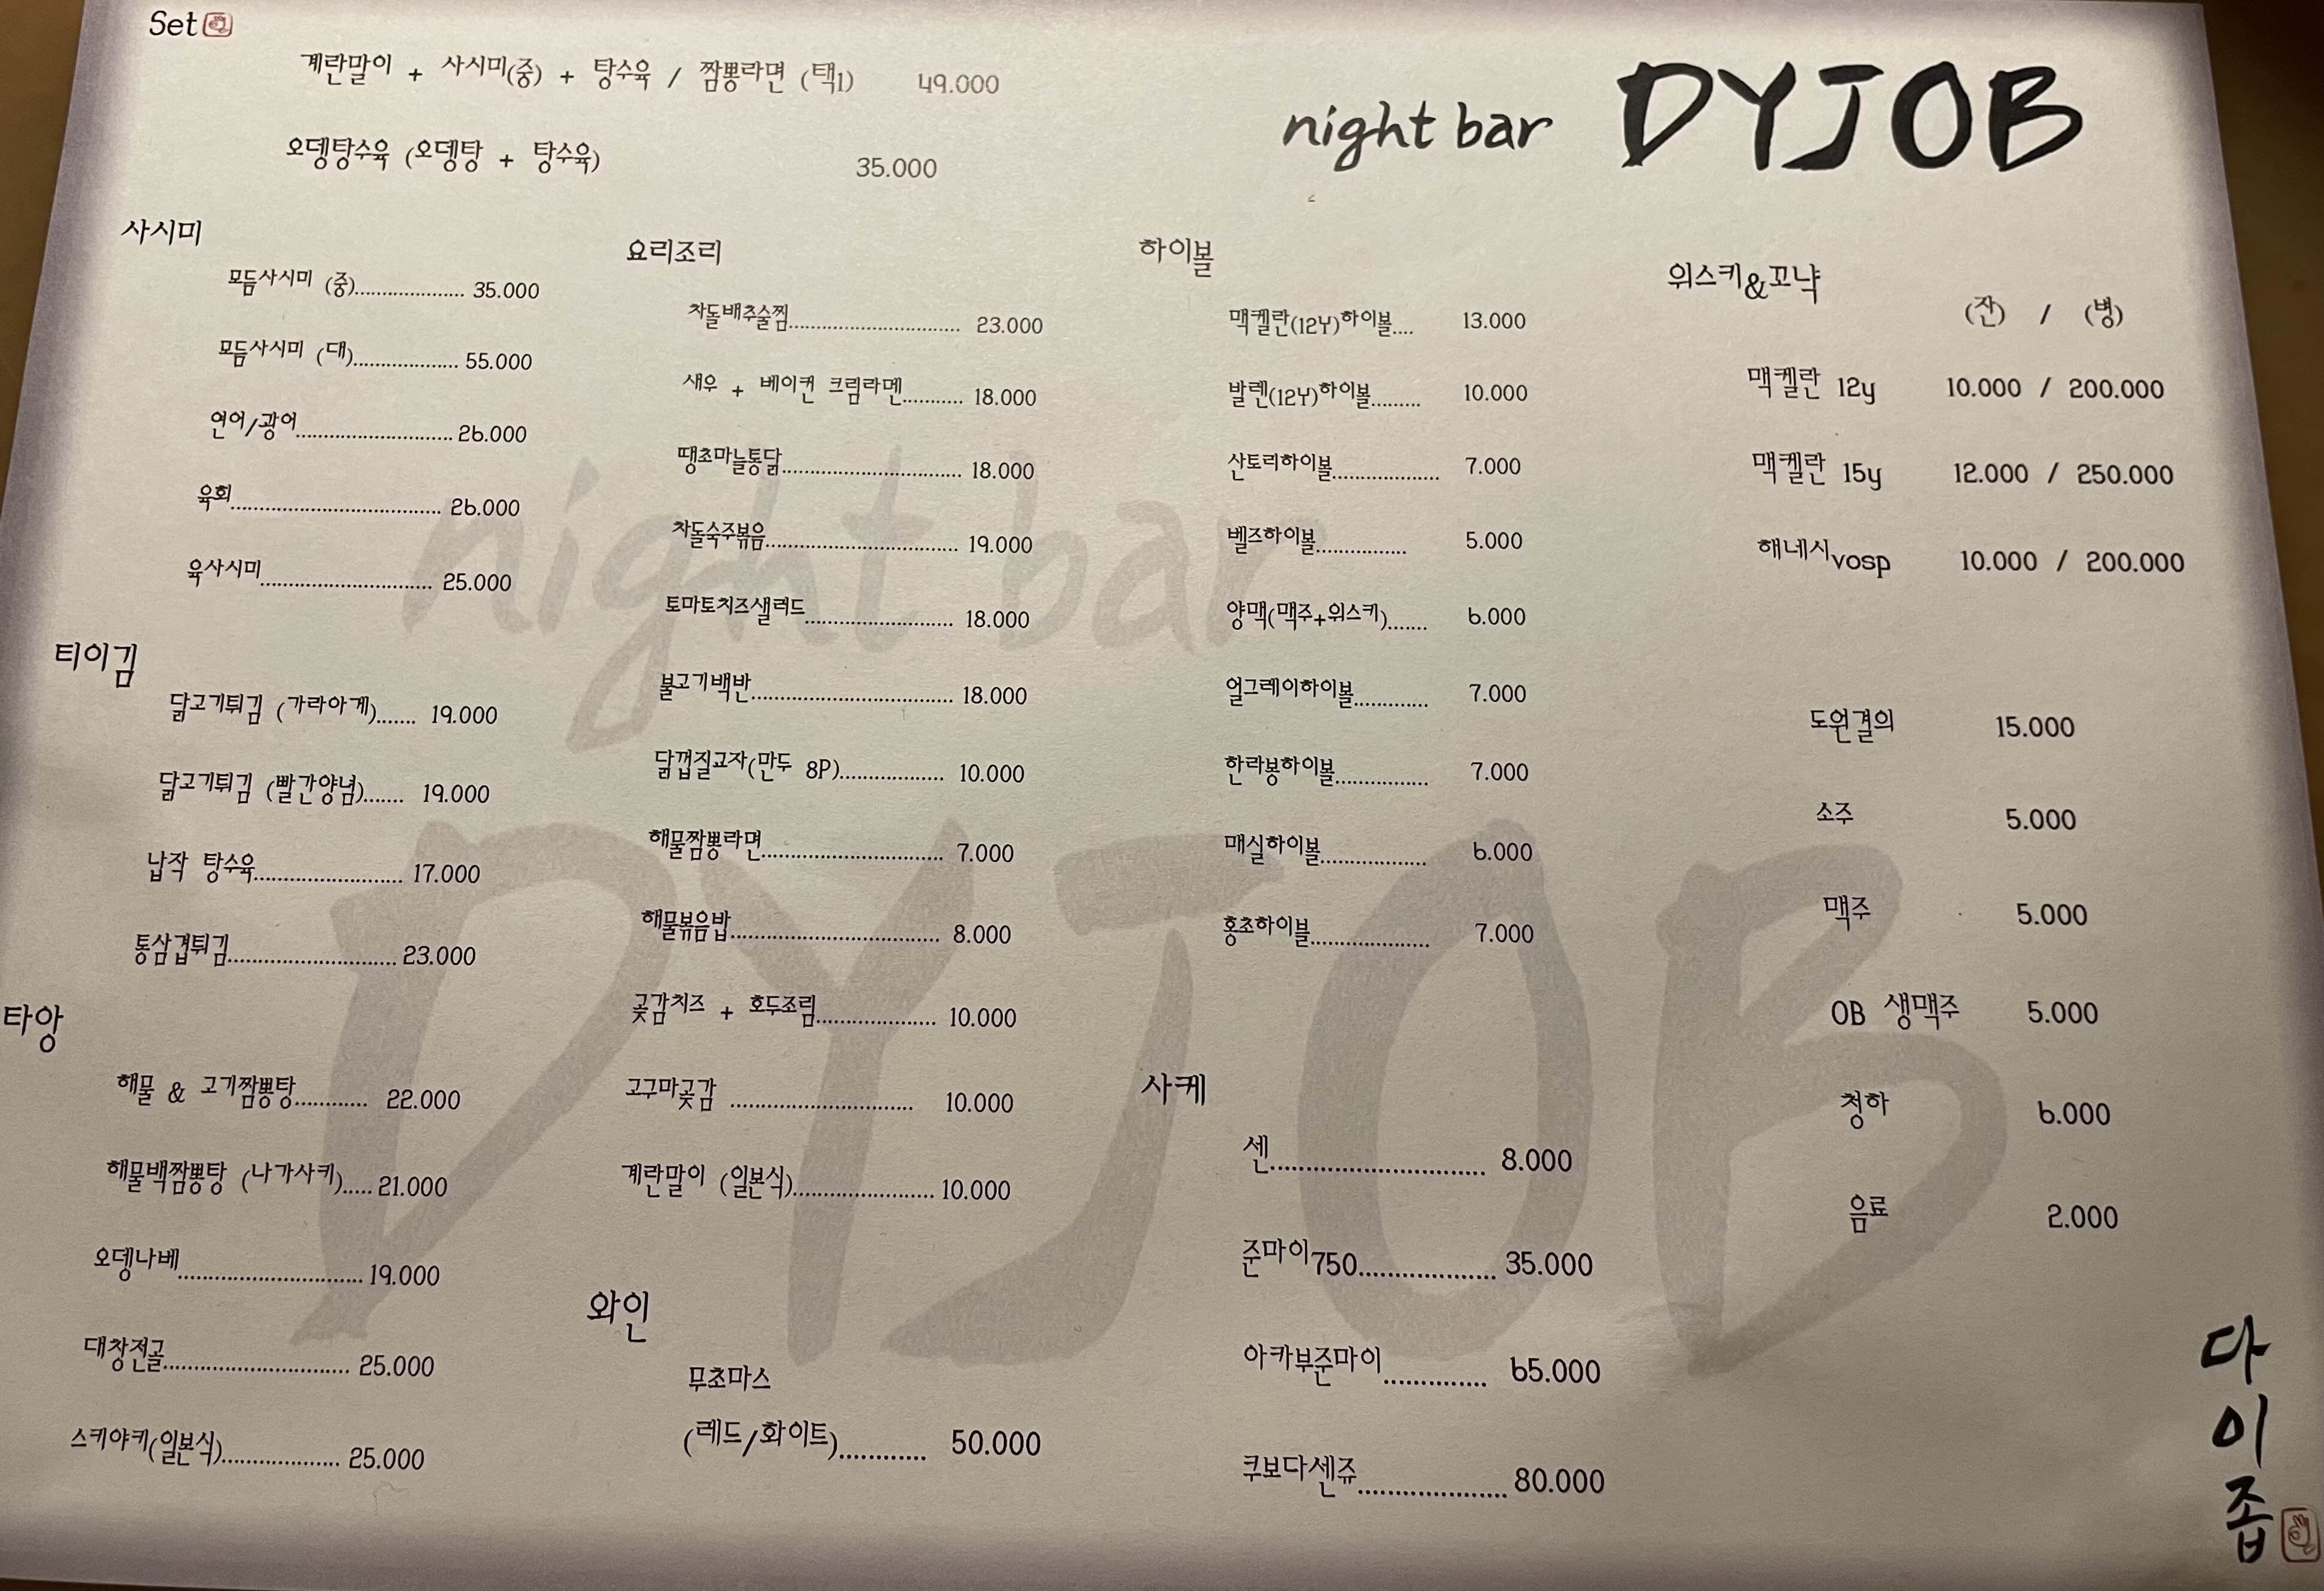 Set
계란말이 + 사시미(중) + 탕수육 / 짬뽕라면 (택1) 49.000
오뎅탕수육 (오뎅탕 + 탕수육) 35.000
night bar DYJOB
사시미
모듬사시미 (중)..................... 35.000
모듬사시미 (대).................... 55.000
연어/광어.............................. 26.000
육회........................................ 26.000
육사시미................................. 25.000
티이김
닭고기튀김 (가라아게)....... 19.000
닭고기튀김 (빨간양념)....... 19.000
납작 탕수육............................ 17.000
통삼겹튀김................................ 23.000
타앙
해물 & 고기짬뽕탕............ 22.000
해물백짬뽕탕 (나가사키)..... 21.000
오뎅나베.................................. 19.000
대창전골.................................. 25.000
스키야키(일본식)..................... 25.000
요리조리
차돌배추술찜................................ 23.000
새우 + 베이컨 크림라멘........... 18.000
땡초마늘통닭................................. 18.000
차돌숙주볶음.................................... 19.000
토마토치즈샐러드........................... 18.000
불고기백반...................................... 18.000
닭껍질교자(만두 8P)................... 10.000
해물짬뽕라면................................. 7.000
해물볶음밥...................................... 8.000
곶감치즈 + 호두조림...................... 10.000
고구마곶감 .................................. 10.000
계란말이 (일본식).......................... 10.000
와인
무초마스
(레드/화이트)............ 50.000
하이볼
맥켈란(12Y)하이볼.... 13.000
발렌(12Y)하이볼......... 10.000
산토리하이볼.................... 7.000
벨즈하이볼................. 5.000
양맥(맥주+위스키)....... 6.000
얼그레이하이볼............. 7.000
한라봉하이볼................ 7.000
매실하이볼.................... 6.000
홍초하이블...................... 7.000
사케
센................................ 8.000
준마이750.................... 35.000
아카부준마이............... 65.000
쿠보다센쥬...................... 80.000
위스키&꼬냑
(잔) / (병)
맥켈란 12y 10.000 / 200.000
맥켈란 15y 12.000 / 250.000
해네시vosp 10.000 / 200.000
도원결의 15.000
소주 5.000
맥주 5.000
OB 생맥주 5.000
청하 6.000
음료 2.000
다이좁
night bar
DYJOB